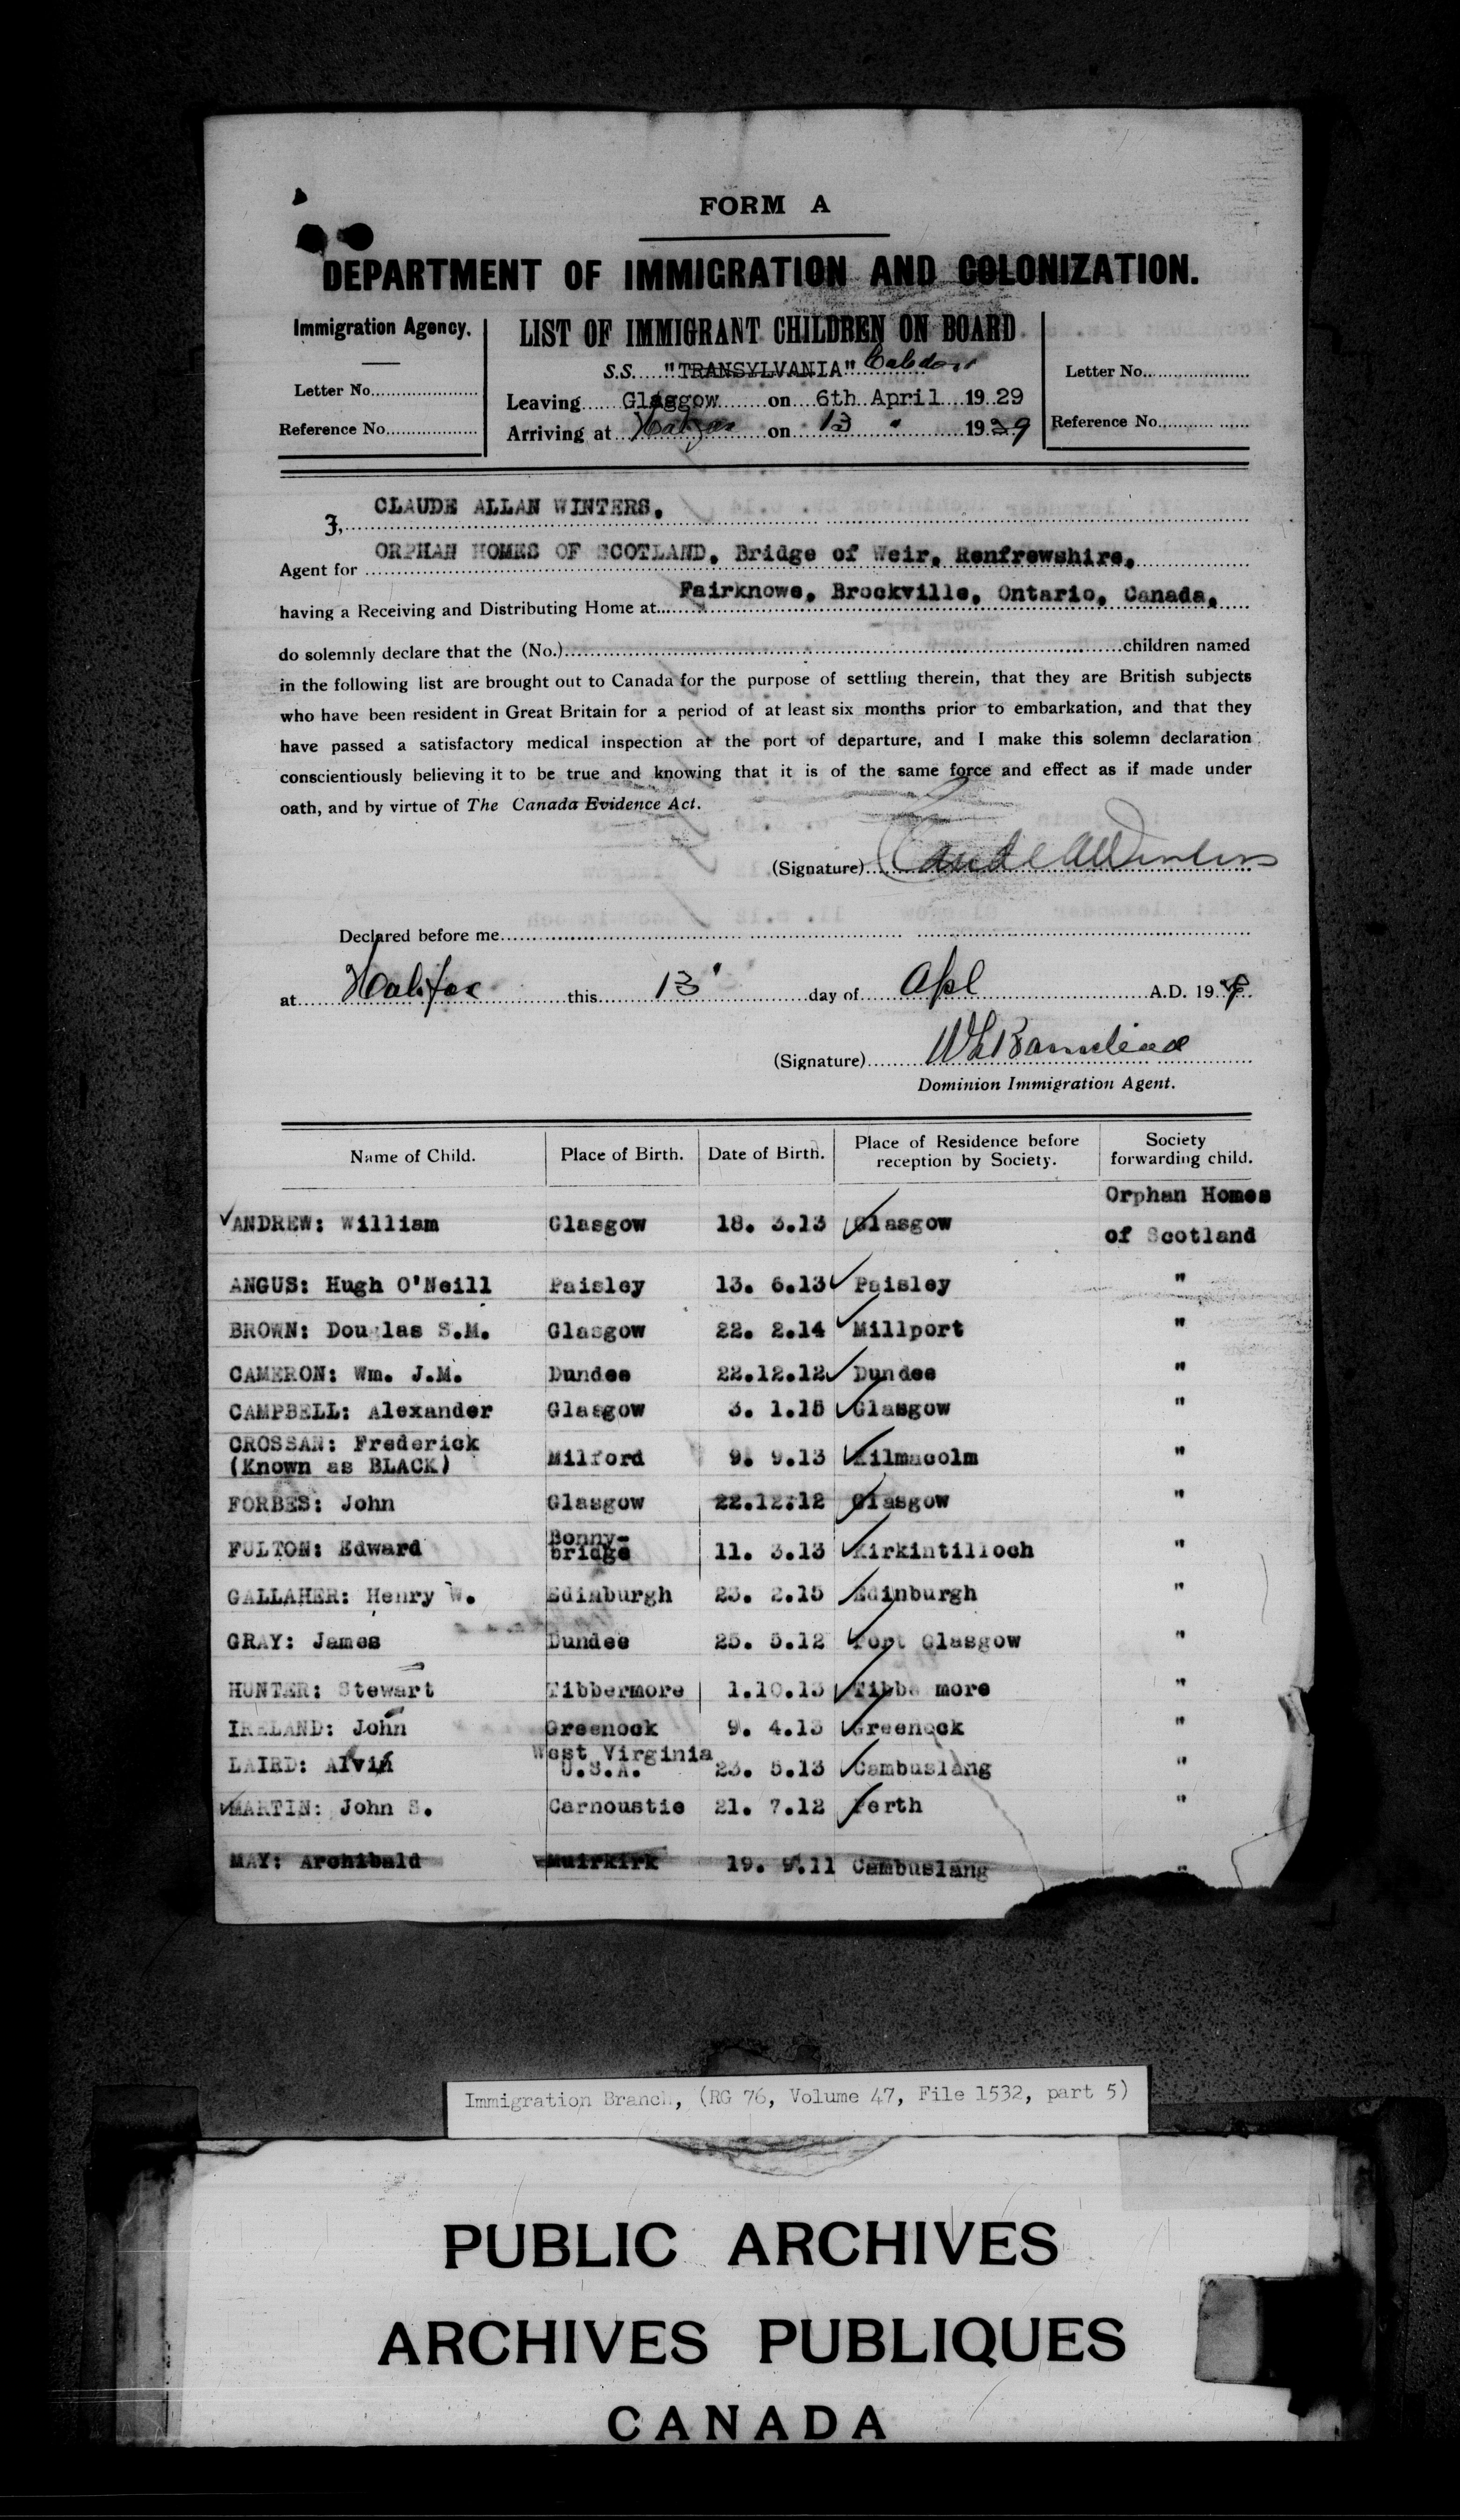 FORM A
DEPARTMENT OF IMMIGRATION AND COLONIZATION.
Immigration Agency.
Letter No.
Reference No.
LIST OF IMMIGRANT CHILDREN ON BOARD
S.S. "TRANSYLVANIA"
Leaving Glasgow on 6th April 1929
Arriving at Halifax on 13 " 1929
Letter No.
Reference No.
I, CLAUDE ALLAN WINTERS.
Agent for ORPHAN HOMES OF SCOTLAND, Bridge of Weir, Renfrewshire,
having a Receiving and Distributing Home at Fairknowe, Brockville, Ontario, Canada,
do solemnly declare that the (No.) children named
in the following list are brought out to Canada for the purpose of settling therein, that they are British subjects
who have been resident in Great Britain for a period of at least six months prior to embarkation, and that they
have passed a satisfactory medical inspection at the port of departure, and I make this solemn declaration
conscientiously believing it to be true and knowing that it is of the same force and effect as if made under
oath, and by virtue of The Canada Evidence Act.
(Signature) Claude A Winters
Declared before me
at Halifax this 13 day of Apl A.D. 19
(Signature)
Dominion Immigration Agent.
Name of Child. Place of Birth. Date of Birth. Place of Residence before reception by Society. Society forwarding child.
ANDREW: William Glasgow 18. 3.13 Glasgow Orphan Homes of Scotland
ANGUS: Hugh O'Neill Paisley 13. 6.13 Paisley "
BROWN: Douglas S.M. Glasgow 22. 2.14 Millport "
CAMERON: Wm. J.M. Dundee 22.12.12 Dundee "
CAMPBELL: Alexander Glasgow 3. 1.15 Glasgow "
CROSSAN: Frederick
(Known as BLACK) Milford 9. 9.13 Kilmacolm "
FORBES: John Glasgow 22.12.12 Glasgow "
FULTON: Edward Bonny-bridge 11. 3.13 Kirkintilloch "
GALLAHER: Henry W. Edinburgh 23. 2.15 Edinburgh "
GRAY: James Dundee 25. 5.12 Port Glasgow "
HUNTER: Stewart Tibbermore 1.10.13 Tibbermore "
IRELAND: John Greenock 9. 4.13 Greenock "
LAIRD: Alvin West Virginia U.S.A. 23. 5.13 Cambuslang "
MARTIN: John S. Carnoustie 21. 7.12 Perth "
MAY: Archibald Muirkirk 19. 9.11 Cambuslang "
Immigration Branch, (RG 76, Volume 47, File 1532, part 5)
PUBLIC ARCHIVES
ARCHIVES PUBLIQUES
CANADA